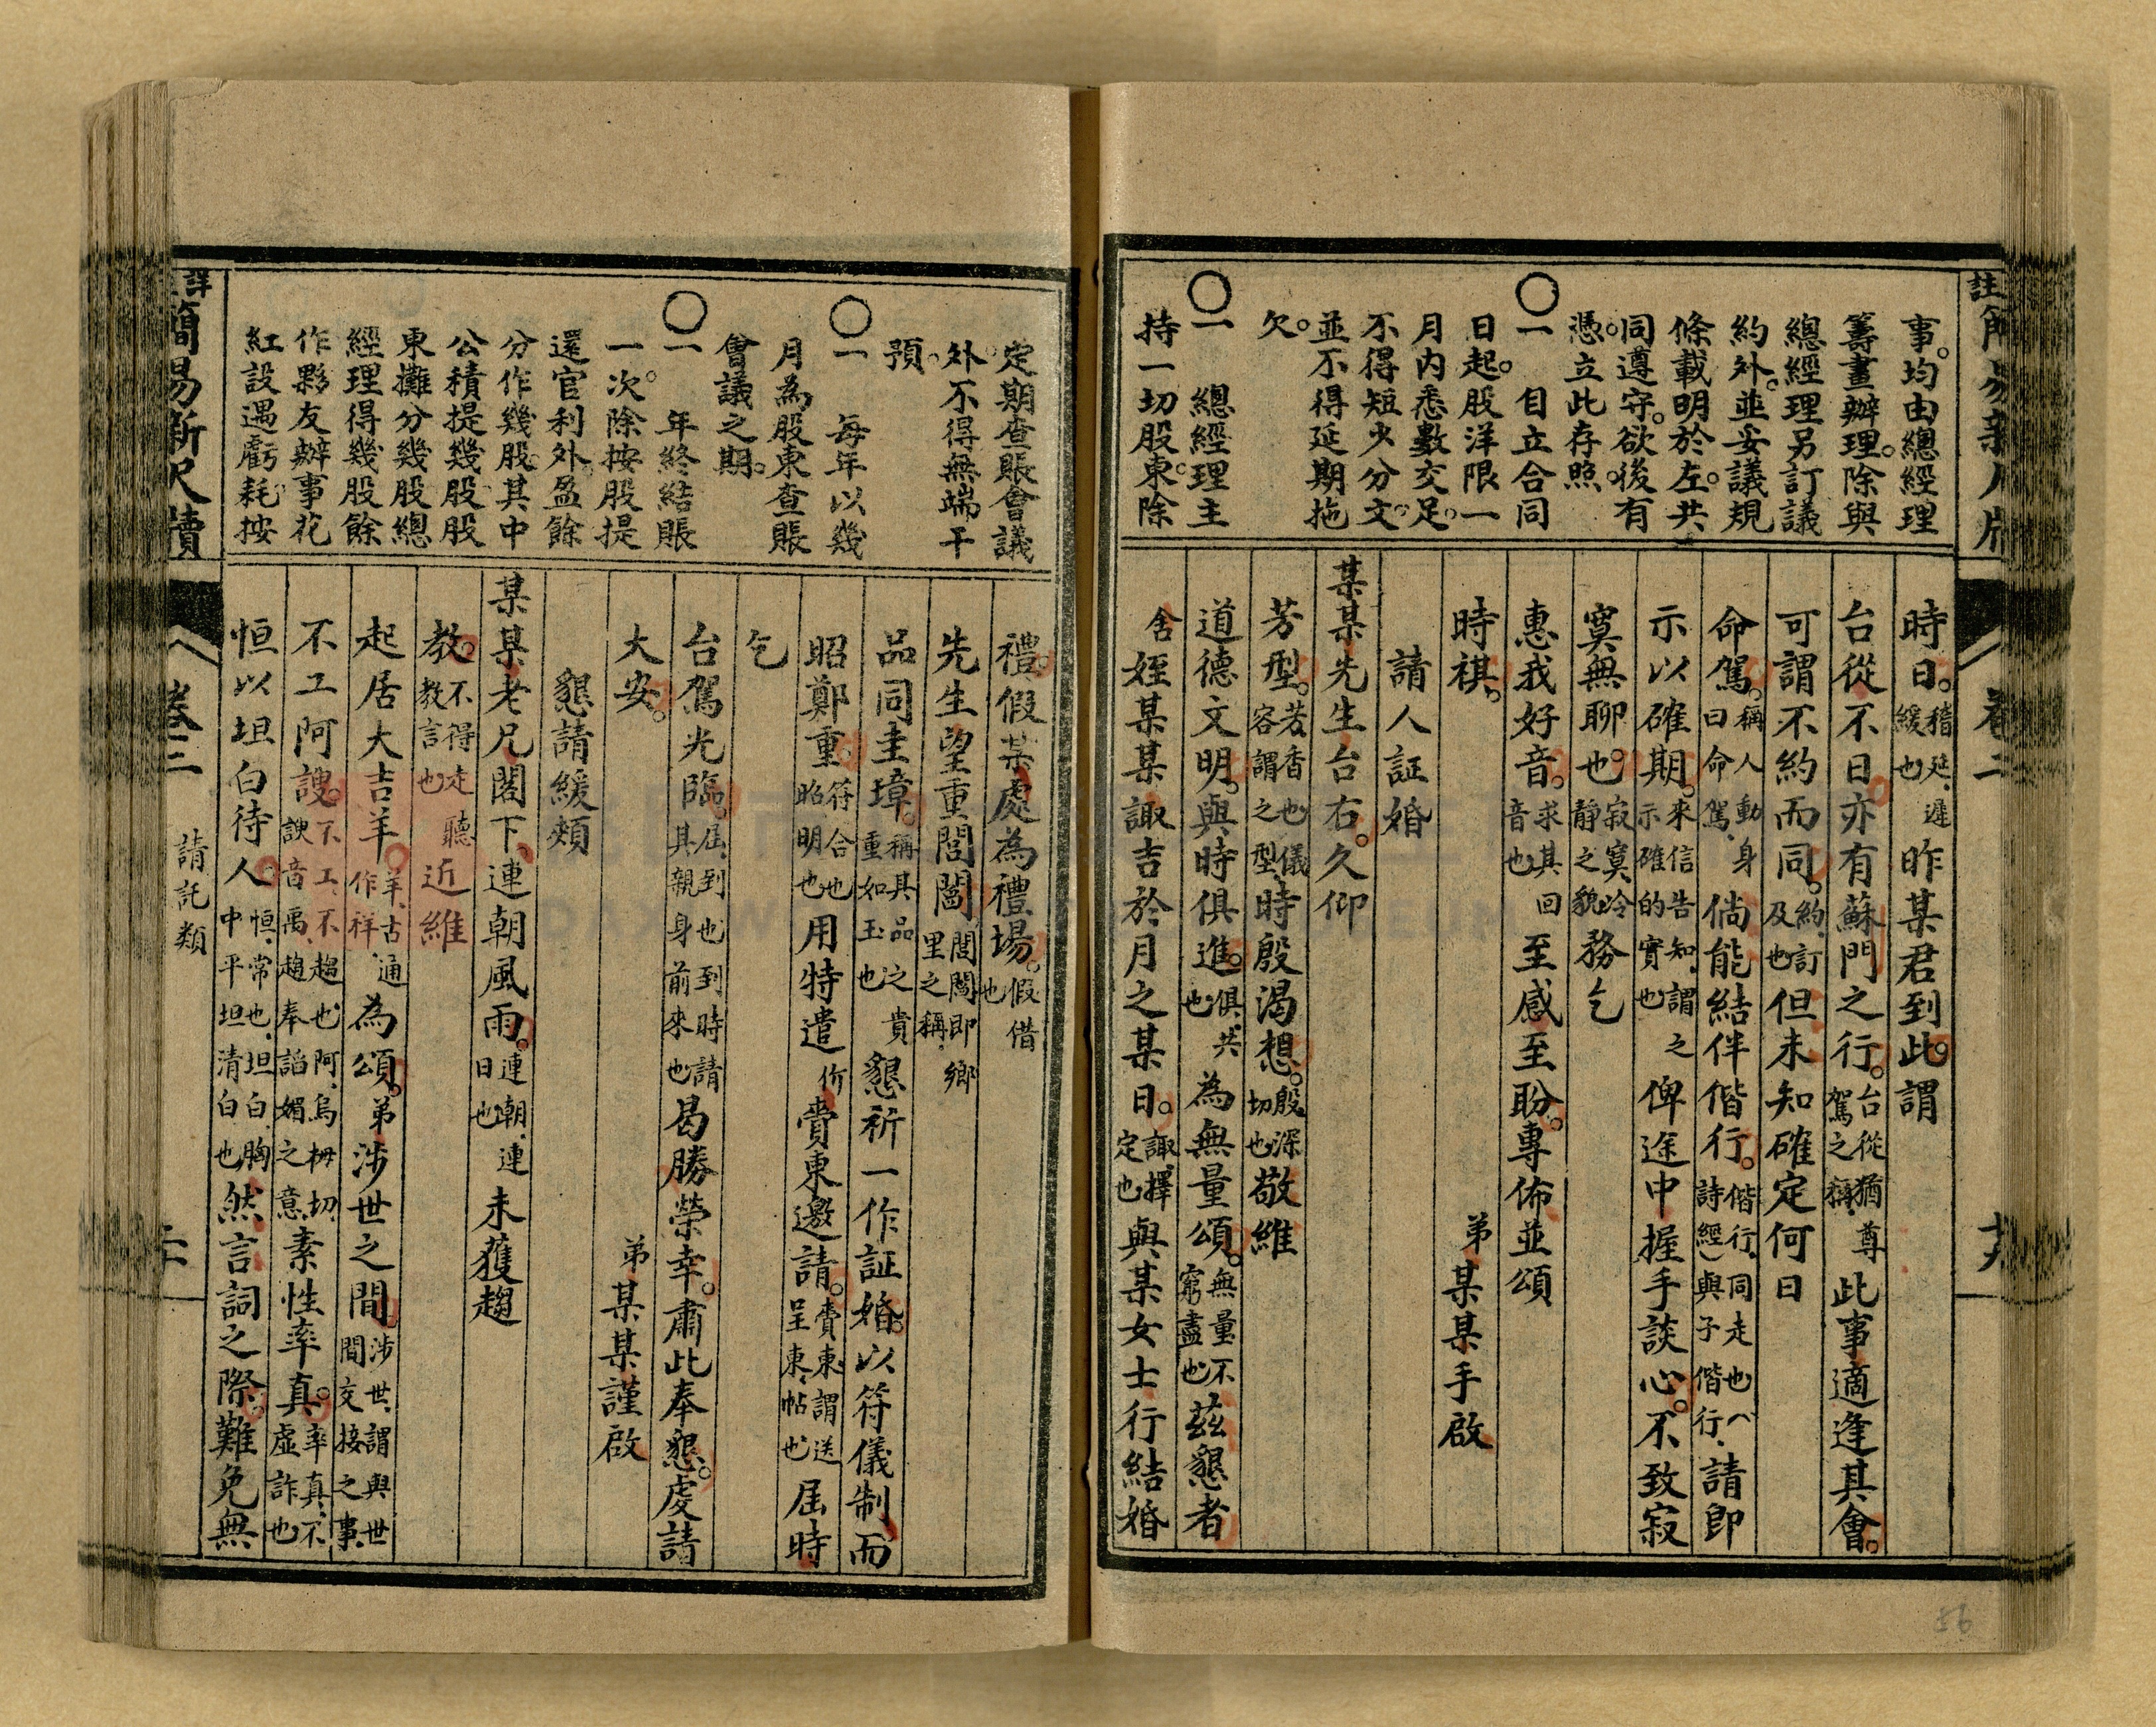 事。均由總經理
籌畫辦理。除與
總經理另訂議
約外。並妥議規
條載明於左。共
同遵守。欲後有
憑。立此存照。
〇一　自立合同
日起。股洋限一
月內悉數交足。
不得短少分文。
並不得延期拖
欠。
〇一　總經理主
持一切股東。除
時日。稽延、遲緩也昨某君到此。謂
台從不日亦有蘇門之行。台從猶尊駕之稱、此事適逢其會。
可謂不約而同。約、訂及也但未知確定何日
命駕。稱人動身曰命駕、倘能結伴偕行。偕行、同走也（詩經）與子偕行、請即
示以確期。來信告知、謂之示確的實也俾途中握手談心。不致寂
寞無聊也。寂寞冷靜之貌務乞
惠我好音。求其回音也至感至盼。專佈並頌
時祺。　弟某某手啟
請人証婚
某某先生台右。久仰
芳型。芳香也儀容謂之型、時殷渴想。殷深切也敬維
道德文明。與時俱進。俱、共也為無量頌。無量不窮盡也茲懇者
舍姪某某諏吉於月之某日。諏、擇定也與某女士行結婚
註簡易新尺牘　卷二
定期查賬會議
外。不得無端干
預。
〇一　每年以幾
月為股東查賬
會議之期。
〇一　年終結賬
一次。除按股提
還官利外。盈餘
分作幾股。其中
公積提幾股。股
東攤分幾股。總
經理得幾股。餘
作夥友辦事花
紅。設遇虧耗。按
禮。假某處為禮場。假借也
先生望重閭閻。閭閻即鄉里之稱、
品同圭璋。稱其品之貴重如玉也懇祈一作証婚。以符儀制而
昭鄭重。符合也昭明也用特遣价賫柬邀請。賫柬謂送呈柬、帖也屆時
乞
台駕光臨。屆、到也到時請其親身前來也曷勝榮幸。肅此奉懇。虔請
大安。　弟某某謹啟
懇請緩頰
某某老兄閣下。連朝風雨。連朝、連日也未獲趨
教。不得走聽教言也近維
起居大吉羊。羊、古通作祥、為頌。弟涉世之間涉世、謂與世間交接之事、
不工阿諛。不工、不趨也阿、烏柯切諛音禹、趨奉諂媚之意、素性率真。率真、不虛詐也
恒以坦白待人。恒、常也、坦白、胸中平坦清白也然言詞之際。難免無
詳註簡易新尺牘　卷二　請託類